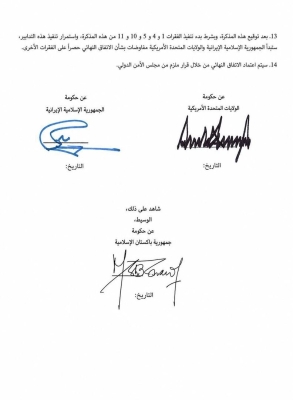 13. بعد توقيع هذه المذكرة، وبشرط بدء تنفيذ الفقرات 1 و 4 و 5 و 10 و 11 من هذه المذكرة، واستمرار تنفيذ هذه التدابير،
ستبدأ الجمهورية الإسلامية الإيرانية والولايات المتحدة الأمريكية مفاوضات بشأن الاتفاق النهائي حصراً على الفقرات الأخرى.
14. سيتم اعتماد الاتفاق النهائي من خلال قرار ملزم من مجلس الأمن الدولي.
عن حكومة
الولايات المتحدة الأمريكية
التاريخ:
عن حكومة
الجمهورية الإسلامية الإيرانية
التاريخ:
شاهد على ذلك،
الوسيط،
عن حكومة
جمهورية باكستان الإسلامية
التاريخ: